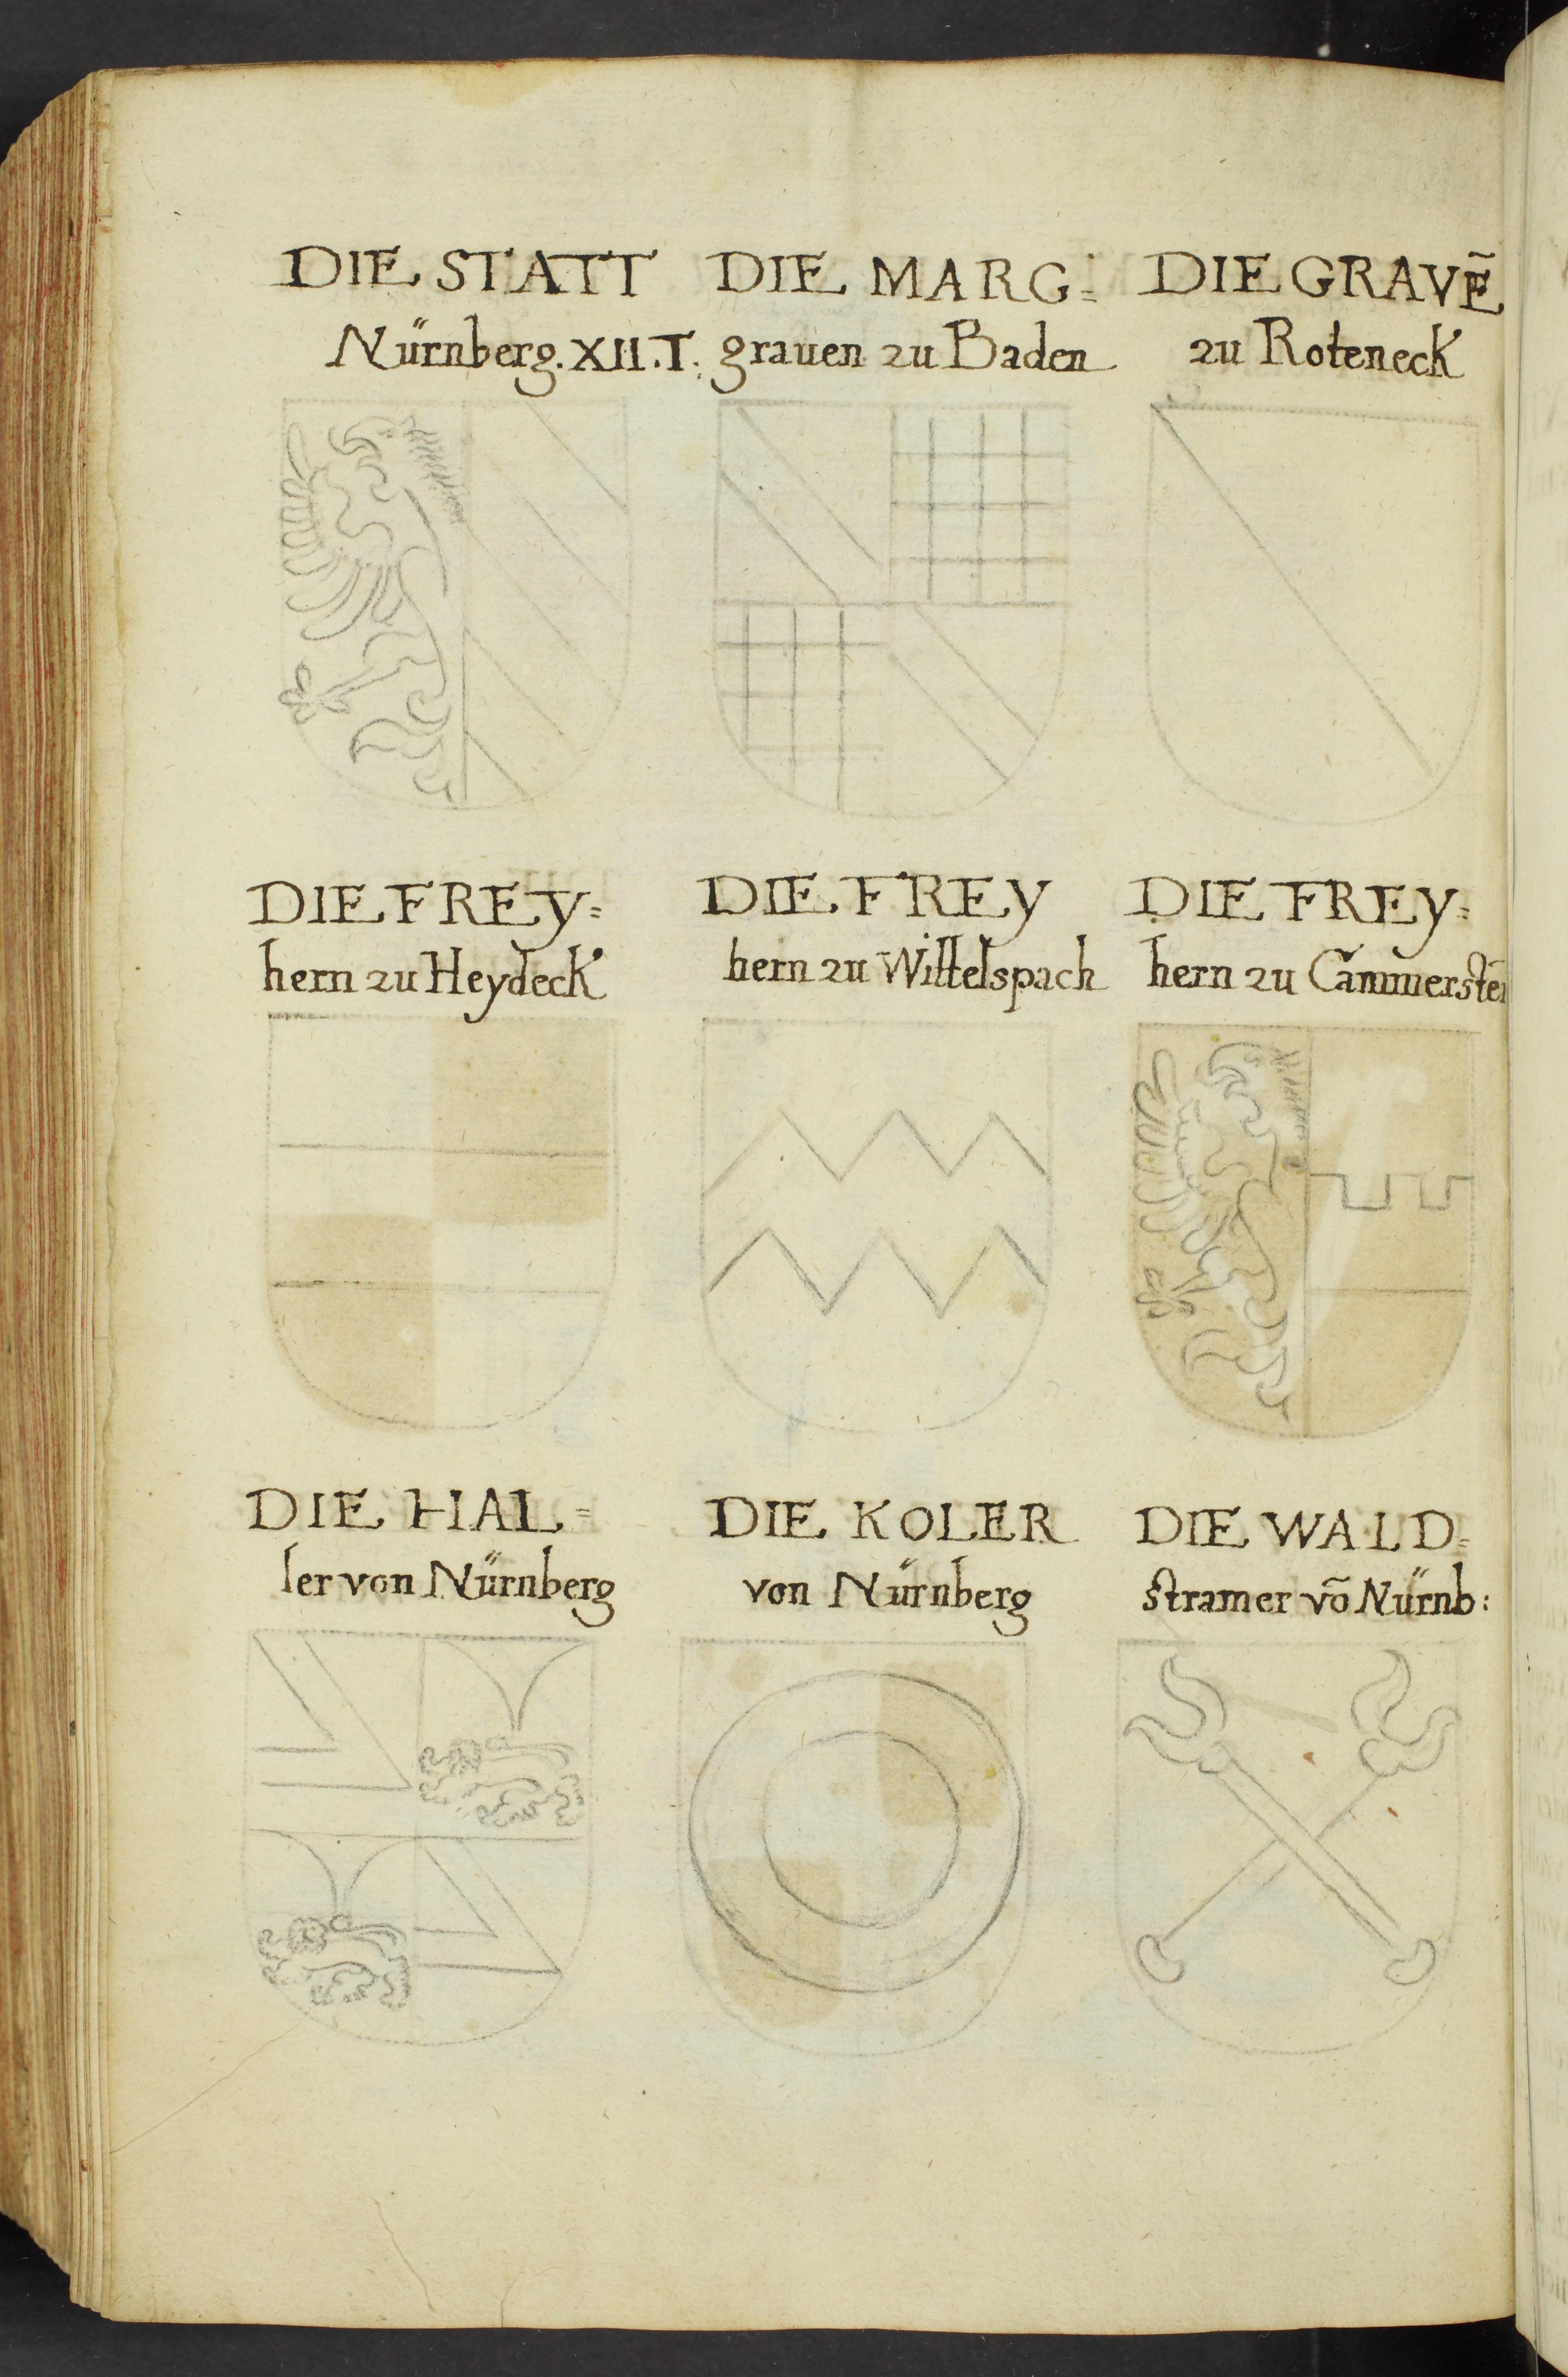 DIE STATT
Nürnberg. XII. T.
DIE MARG=
grauen zu Baden
DIE GRAVẼ
zu Roteneck
DIE FREY=
hern zu Heydeck
DIE FREY
hern zu Wittelspach
DIE FREY=
hern zu
DIE HAL=
ler von Nürnberg
DIE KOLER
von Nürnberg
DIE WALD=
stramer võ Nürnb: